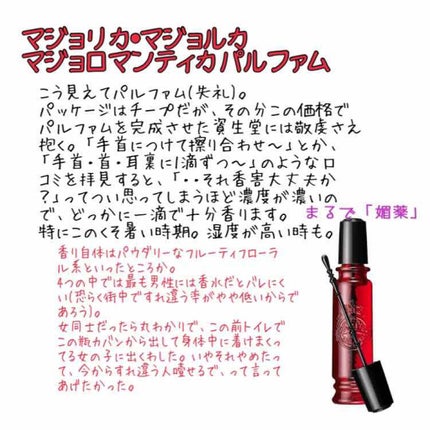 マジョリカ•マジョルカ
マジョロマンティカパルファム
こう見えてパルファム(失礼)。
パッケージはチープだが、その分この価格で
パルファムを完成させた資生堂には敬虔さえ
抱く。「手首につけて擦り合わせ〜」とか、
「手首・首・耳裏に1滴ずつ〜」のような口
コミを拝見すると、「・・それ香害大丈夫か
?」ってつい思ってしまうほど濃度が濃いの
で、どっかに一滴で十分香ります。
まるで「媚薬」
特にこのくそ暑い時期。湿度が高い時も。
香り自体はパウダリーなフルーティフローラ
ル系といったところか。
4つの中では最も男性には香水だとバレにく
い(恐らく街中ですれ違う率がやや低いからで
あろう)。
女同士だったら丸わかりで、この前トイレで
この瓶カバンから出して身体中に着けまくっ
てる女の子に出くわした。いやそれやめたっ
て、今からすれ違う人噎せるで、って言って
あげたかった。